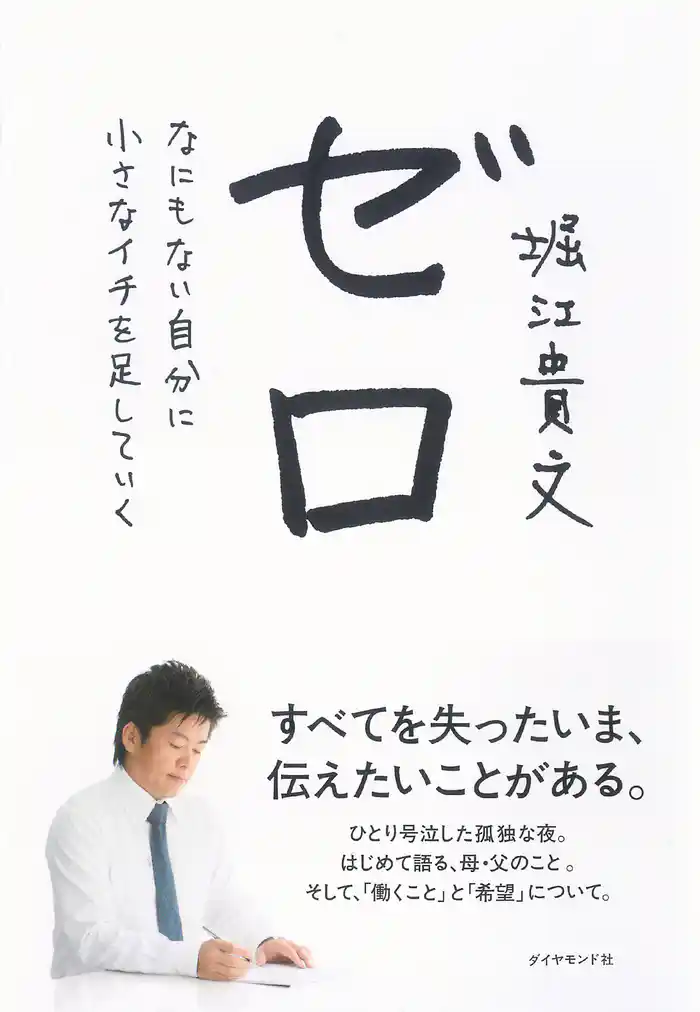 堀江貴文
ゼロ
なにもない自分に
小さなイチを足していく
すべてを失ったいま、
伝えたいことがある。
ひとり号泣した孤独な夜。
はじめて語る、母・父のこと。
そして、「働くこと」と「希望」について。
ダイヤモンド社